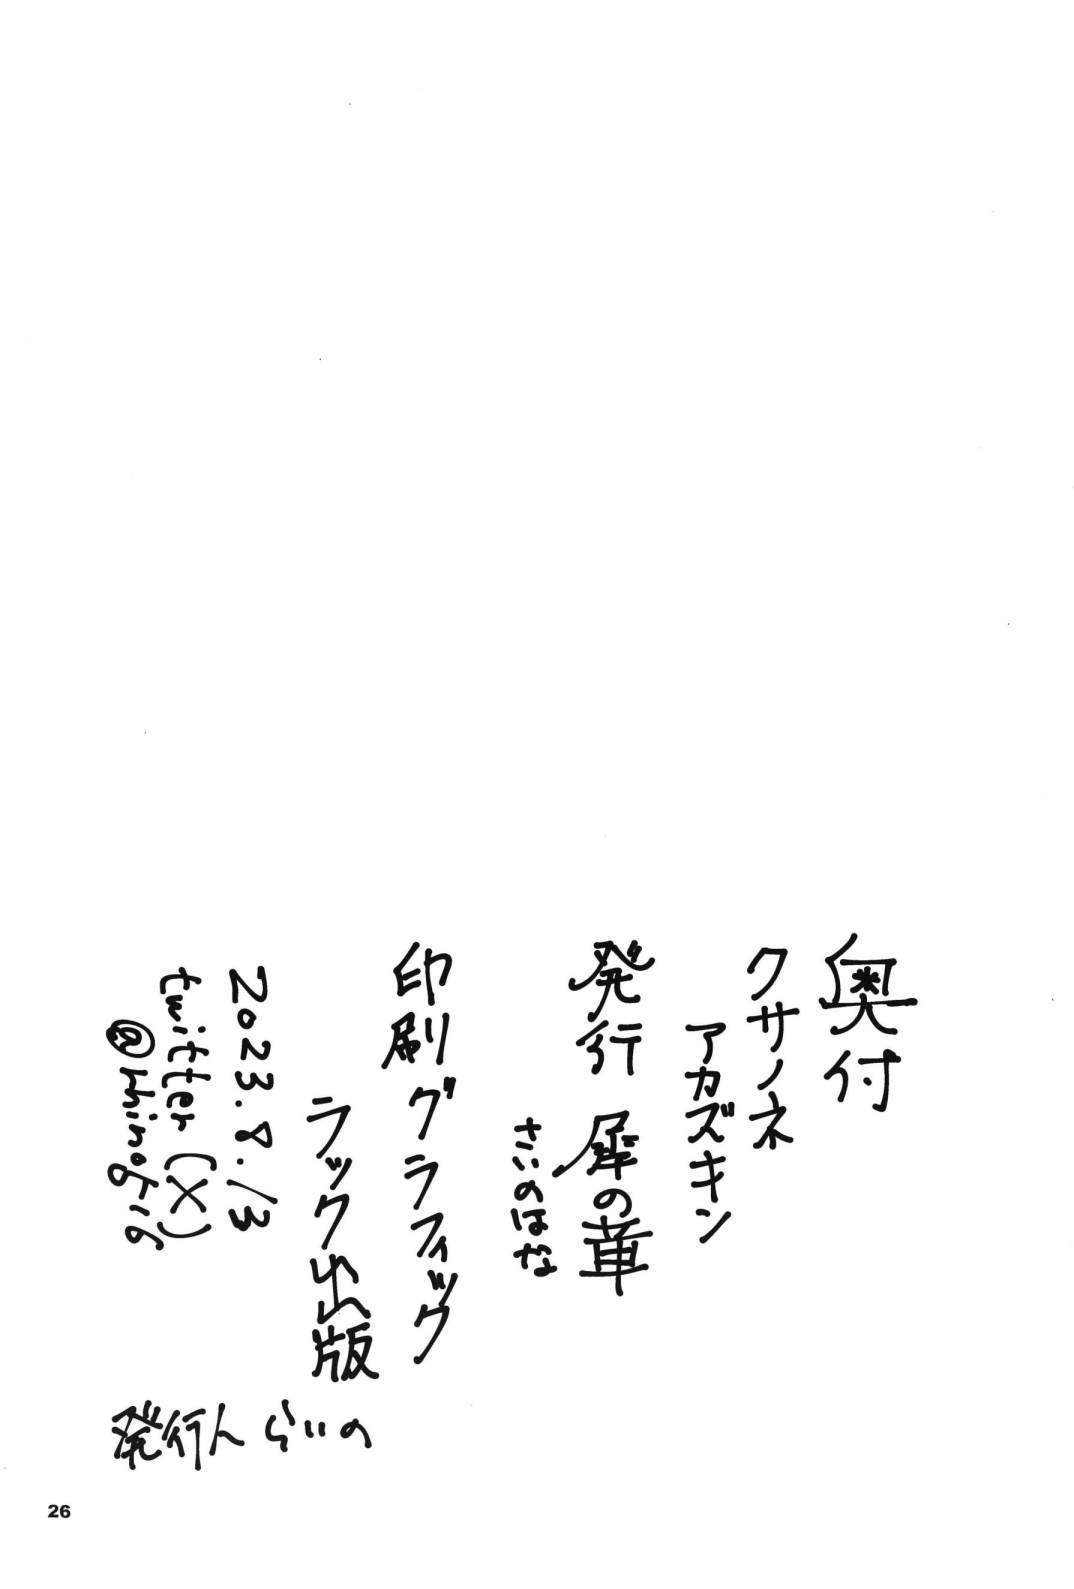 奥付
クサノネ
アカズキン
発行 犀の華
さいのはな
印刷グラフィック
ラック出版
2023.8.13
twitter(X)
@rhino5-16
発行人らいの
26